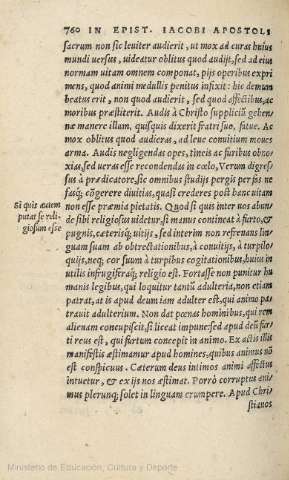 760 IN EPIST. IACOBI APOSTOLI
sacrum non sic leuiter audierit, ut mox ad curas huius
mundi uersus, uideatur oblitus quod audijt, sed ad eius
normam uitam omnem componat, pijs operibus expri
mens, quod animi medullis penitus infixit: hic demum
beatus erit, non quod audierit, sed quod affectibus, ac
moribus præstiterit. Audis à Christo supplicium gehen-
næ manere illam, quisquis dixerit fratri suo, fatue. Ac
mox oblitus quod audieras, ad leue conuitium moues
arma. Audis negligendas opes, tineis ac furibus obno-
xias, sed ueras esse recondendas in cœlo, Verum digres-
sus à prædicatore, sic omnibus studijs pergis per fas ne-
fasq; cõgerere diuitias, quasi crederes post hanc uitam
non esse præmia pietatis. Quod si quis inter uos abun-
de sibi religiosus uidetur, si manus contineat à furto, &
pugnis, cæterisq; uitijs, sed interim non refrenans lin-
guam suam ab obtrectationibus, à conuitijs, à turpilo-
quijs, neq; cor suum à turpibus cogitationibus, huius in
utilis infrugiferaq; religio est. Fortasse non punitur hu
manis legibus, qui loquitur tantũ adulteria, non etiam
patrat, at is apud deum iam adulter est, qui animo pa-
trauit adulterium. Non dat pœnas hominibus, qui rem
alienam concupiscit, si liceat impune: sed apud deũ fur-
ti reus est, qui furtum concepit in animo. Ex actis illis
manifestis æstimamur apud homines, quibus animus nõ
est conspicuus. Cæterum deus intimos animi affectus
intuetur, & ex ijs nos æstimat. Porrò corruptus ani-
mus plerunq; solet in linguam erumpere. Apud Chri-
stianos
Si quis autem
putat se reli-
giosum esse
Ministerio de Educación, Cultura y Deporte